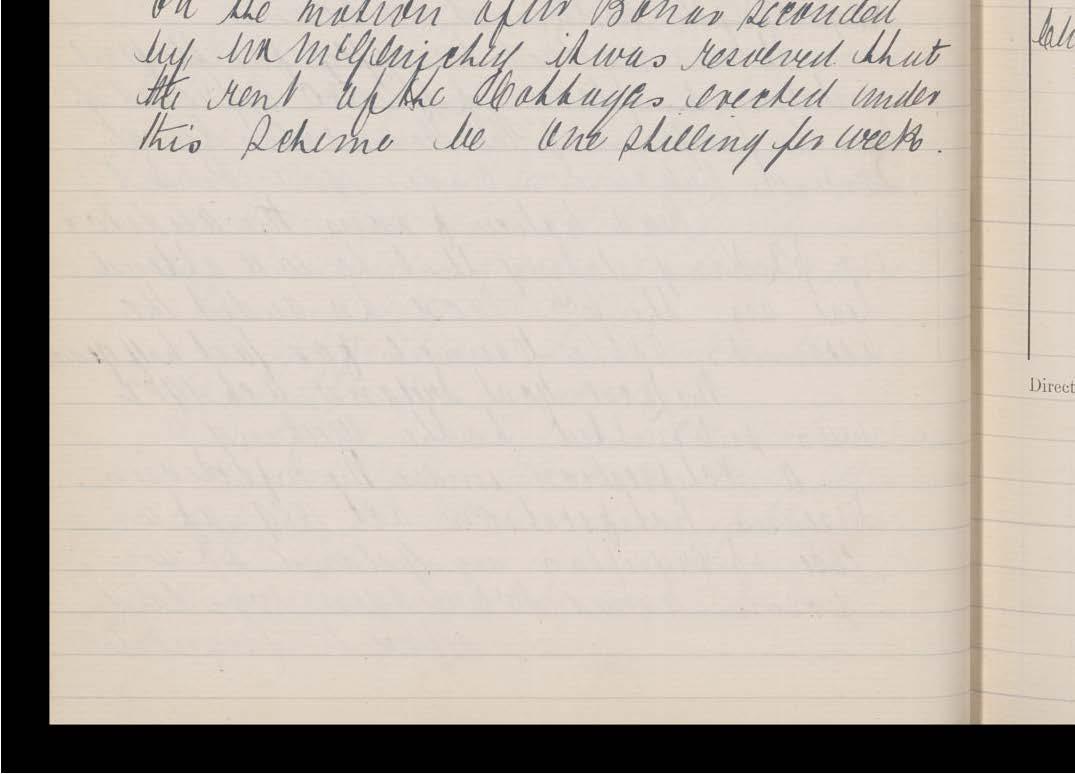 on the motion of Mr Bonar seconded
by Mr McGlinchey it was resolved that
the rent of the Cottages erected under
this Scheme be One shilling per week.
Direct